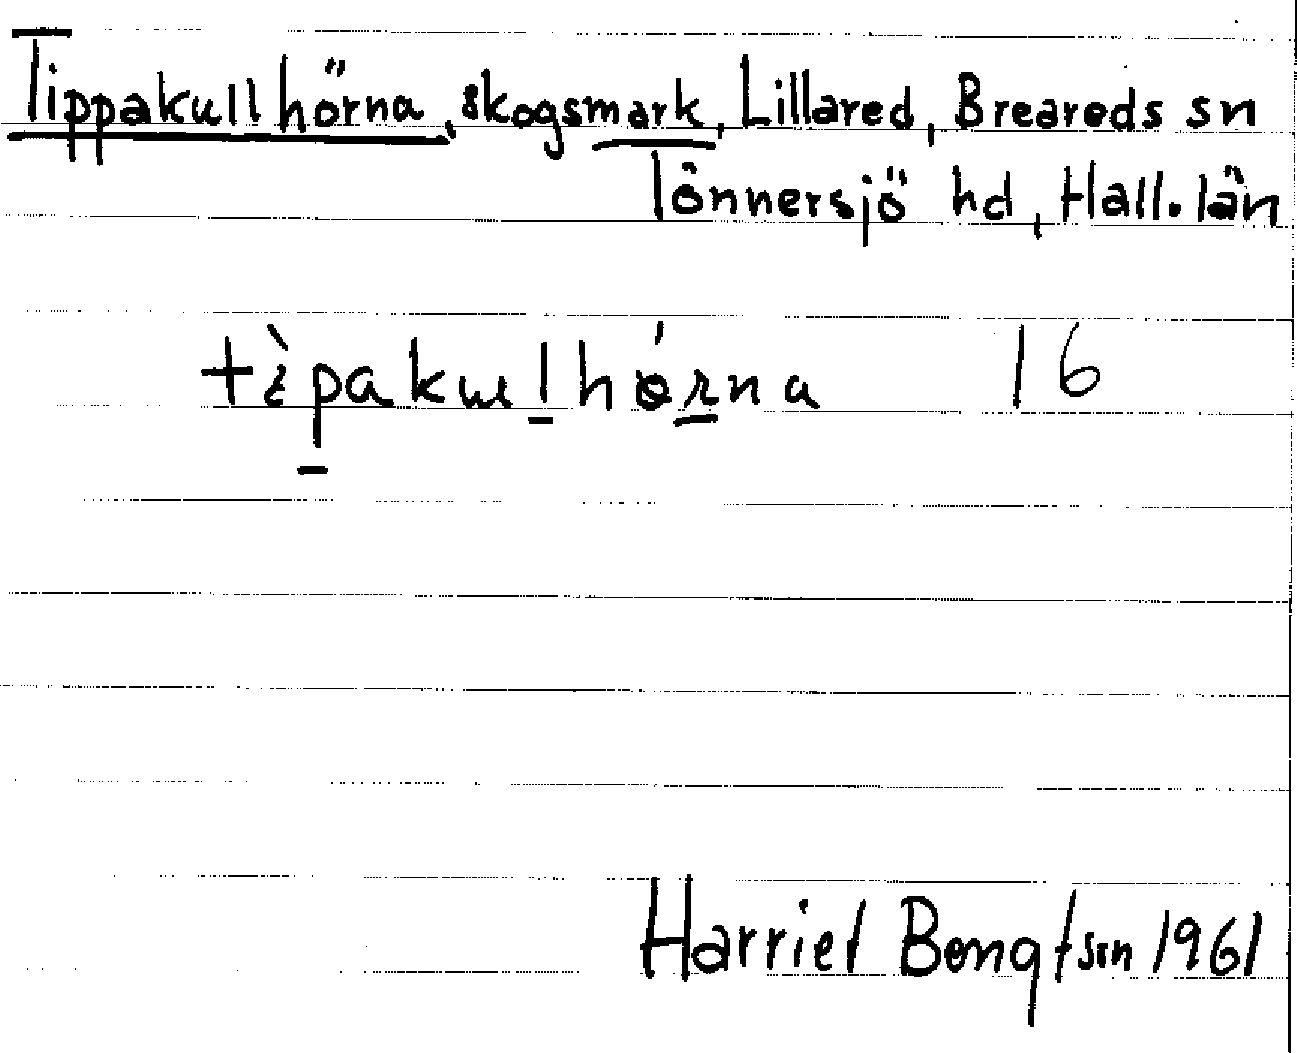 Tippakullhörna, skogsmark, Lillared, Breareds sn
Tönnersjö hd, Hall. län
tìpakullhǿrna 16
Harriet Bengtson 1961